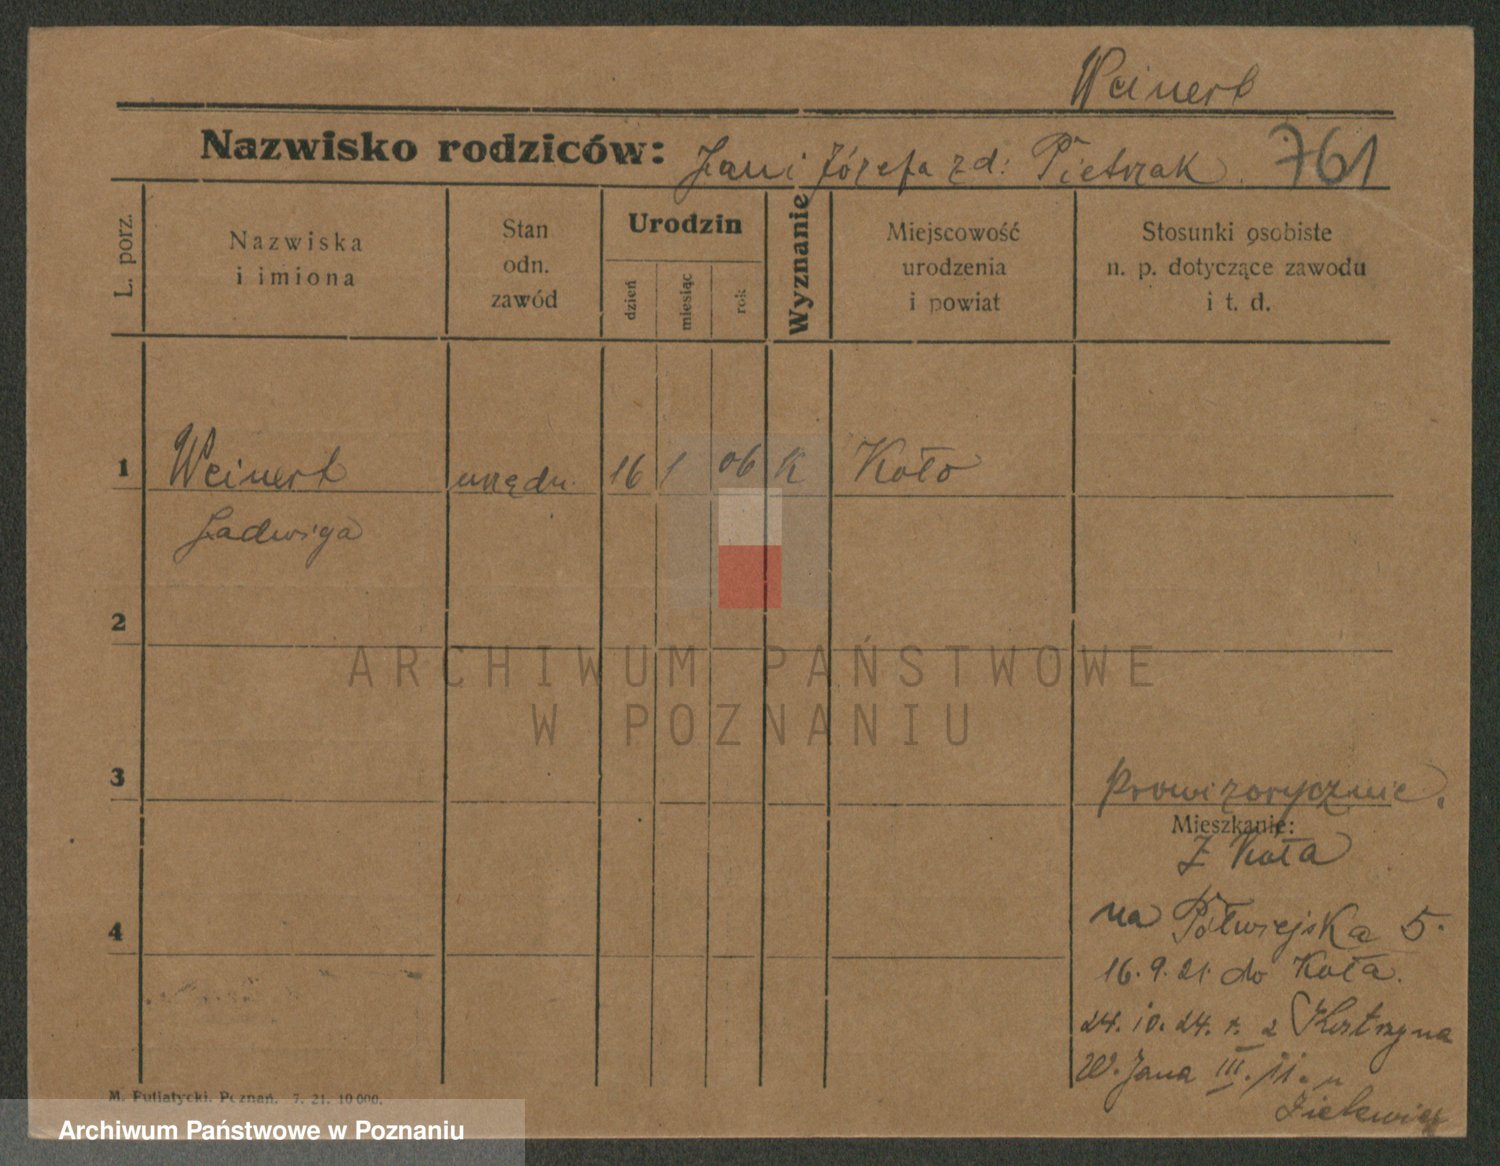 Weinert
Nazwisko rodziców: Jan i Józefa z d: Pietrzak. 761
L. porz.
Nazwiska
i imiona
Stan
odn.
zawód
Urodzin
dzień
miesiąc
rok
Wyznanie
Miejscowość
urodzenia
i powiat
Stosunki osobiste
n. p. dotyczące zawodu
i t. d.
1 Weinert urzędn. 16 1 06 K Koło
Jadwiga
2
ARCHIWUM PAŃSTWOWE
W POZNANIU
3
Prowizorycznie.
Mieszkanie:
Z Koła
4
na Półwiejska 5.
16. 9. 21. do Koła.
24. 10. 24. r. z
W. Jana III. 11. u
M. Putiatycki. Poznań. 7. 21. 10 000.
Archiwum Państwowe w Poznaniu